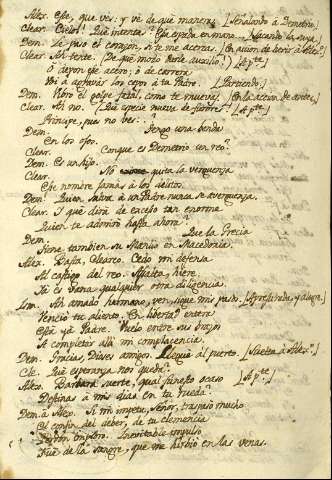 Alex. Ese, que ves: y ve de qué manera. [Señalando à Demetrio.]
Clear. Cielos! Què intenta? Esa espada en mano [Sacando la suya.]
Dem. Le paso el corazon, si te me acercas. [En accion de herir à Alex.º]
Clear. Ah! tente. (De què modo darle auxilio?) [Ap.te]
O depon ese acero; ò de carrera
Voi à
Padre. [Partiendo.]
Dem. el golpe, como te muevas. [En la accion de antes.]
Clear. Ah! no. (Què especie nueva de furores!) [Ap.te]
Principe, pues no ves:..?
Dem. Tengo una benda
En los ojos.
Clear. Conque es Demetrio un reo?
Dem. Es un hijo.
Clear. No quita la verguenza
Ese nombre jamàs à los delitos.
Dem. Quien salva à un Padre nunca se averguenza.
Clear. I què dirà de exceso tan enorme
Quien te admirò hasta ahora?
Dem. Que la Grecia
Tiene tambien su Manlio en Macedonia.
Alex. Basta, Clearco. Cedo mi defensa
Al castigo del reo. hiere.
Ya es vana qualquier otra diligencia.
Ah amado hermano, ven, sigue mis pasos. [Apresurada, y alegre.]
Venciò tu aliento. En libertad entera
Està ya Padre. Vuelo entre sus brazos
A completar allà mi complacencia.
Dem. Gracias, Dioses amigos. Lleguè al puerto. [Suelta à Alex.º]
Cle. Què esperanza nos queda?
Alex. Barbara suerte, què funesto ocaso [Ap.te]
Destinas à mis dias en tu rueda?
Dem. à Alex. Si mi impetu, Señor, traspasò mucho
El confin del deber, de tu clemencia
Perdon imploro. Inevitable impulso
Fuè de la sangre, que me hirbiò en las venas.